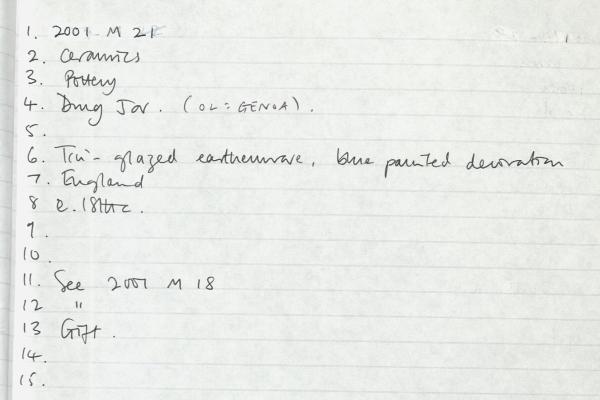 1. 2001 M 21
2. Ceramics
3. Pottery
4. Drug Jar. (OL: GENOA).
5.
6. Tin-glazed earthenware, blue painted decoration
7. England
8 e.18thc.
9.
10.
11. See 2001 M 18
12 "
13 Gift.
14.
15.